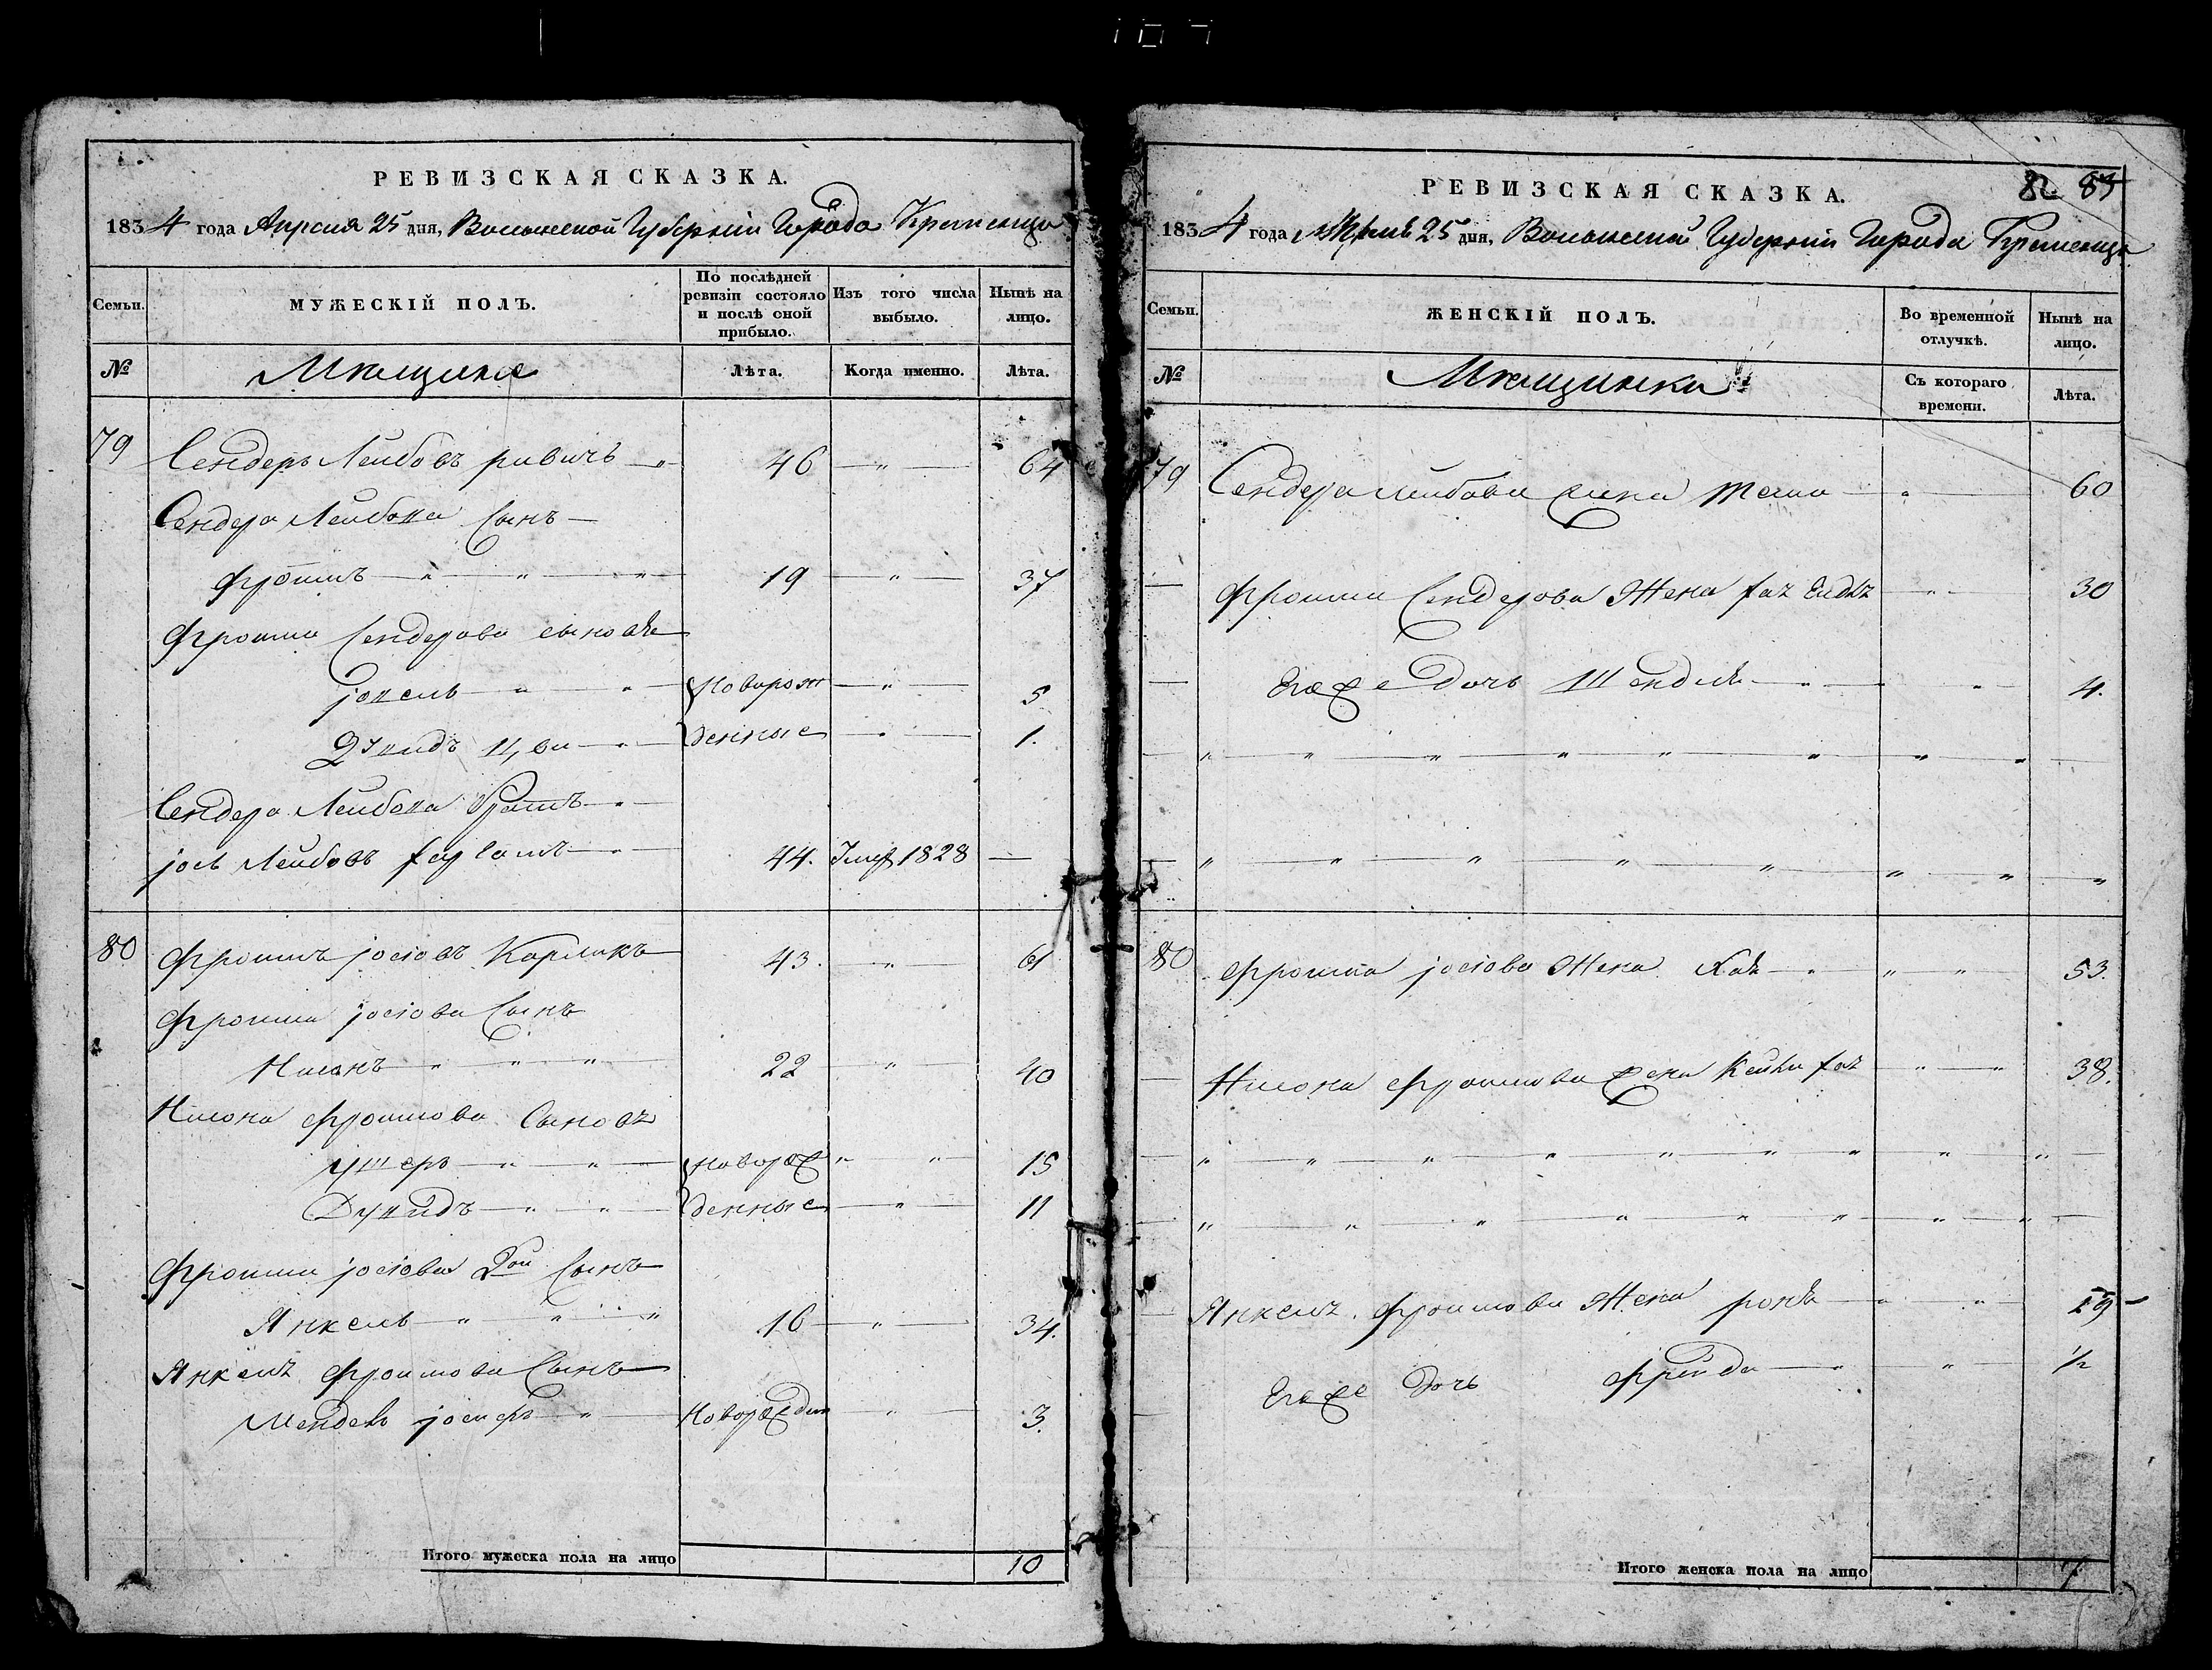 РЕВИЗСКАЯ СКАЗКА.
1834 года Апреля 25 дня, Волынской Губерніи Города Кременца
Семьи.
МУЖЕСКІЙ ПОЛЪ.
По послѣдней ревизіи состояло и послѣ оной прибыло.
Изъ того числа выбыло.
Нынѣ на лицо.
№
Мѣщане
Лѣта.
Когда именно.
Лѣта.
79 Сендеръ Лейбовъ ривичъ 46 64
Сендера Лейбова Сынъ
фроимъ 19 37
Фроима Сендерова сыновѣ
јосель Новорож 5
Дувидъ денные 1.
Сендера Лейбова братъ
јось Лейбовъ 44. Умер 1828
80 Фроимъ јосіовъ Карликъ 43. 61
Фроима јосіова Сынъ
Нисонъ 22 40
Нисона Фроимова Сыновѣ
ушеръ Новорож 15
Дувидъ денные 11
Фроима јосіова 2ой Сынъ
Янкель 16 34.
Янкеля Фроимова Сынъ
Мендель јосифъ Новорожден 3.
Итого мужеска пола на лицо 10
82 83
РЕВИЗСКАЯ СКАЗКА.
1834 года Апреля 25 дня, Волынской Губерніи Города Кременца
Семьи.
ЖЕНСКІЙ ПОЛЪ.
Во временной отлучкѣ.
Нынѣ на лицо.
№
Мѣщанки
Съ котораго времени.
Лѣта.
79 Сендера Лейбова жена 60
Фроима Сендерова Жена 30
Егоже Дочь Шендля 4.
80 Фроима јосіова Жена Хая 53.
Нисона Фроимова жена 38.
Янкеля Фроимова Жена
Егоже Дочь Фрейда 1/2
Итого женска пола на лицо 7